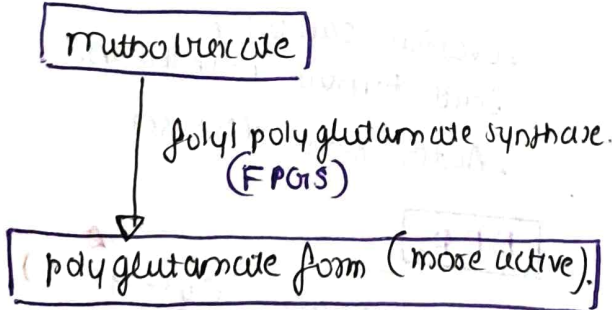 methotrexate
folyl polyglutamate synthase.
(FPGS)
polyglutamate form (more active).